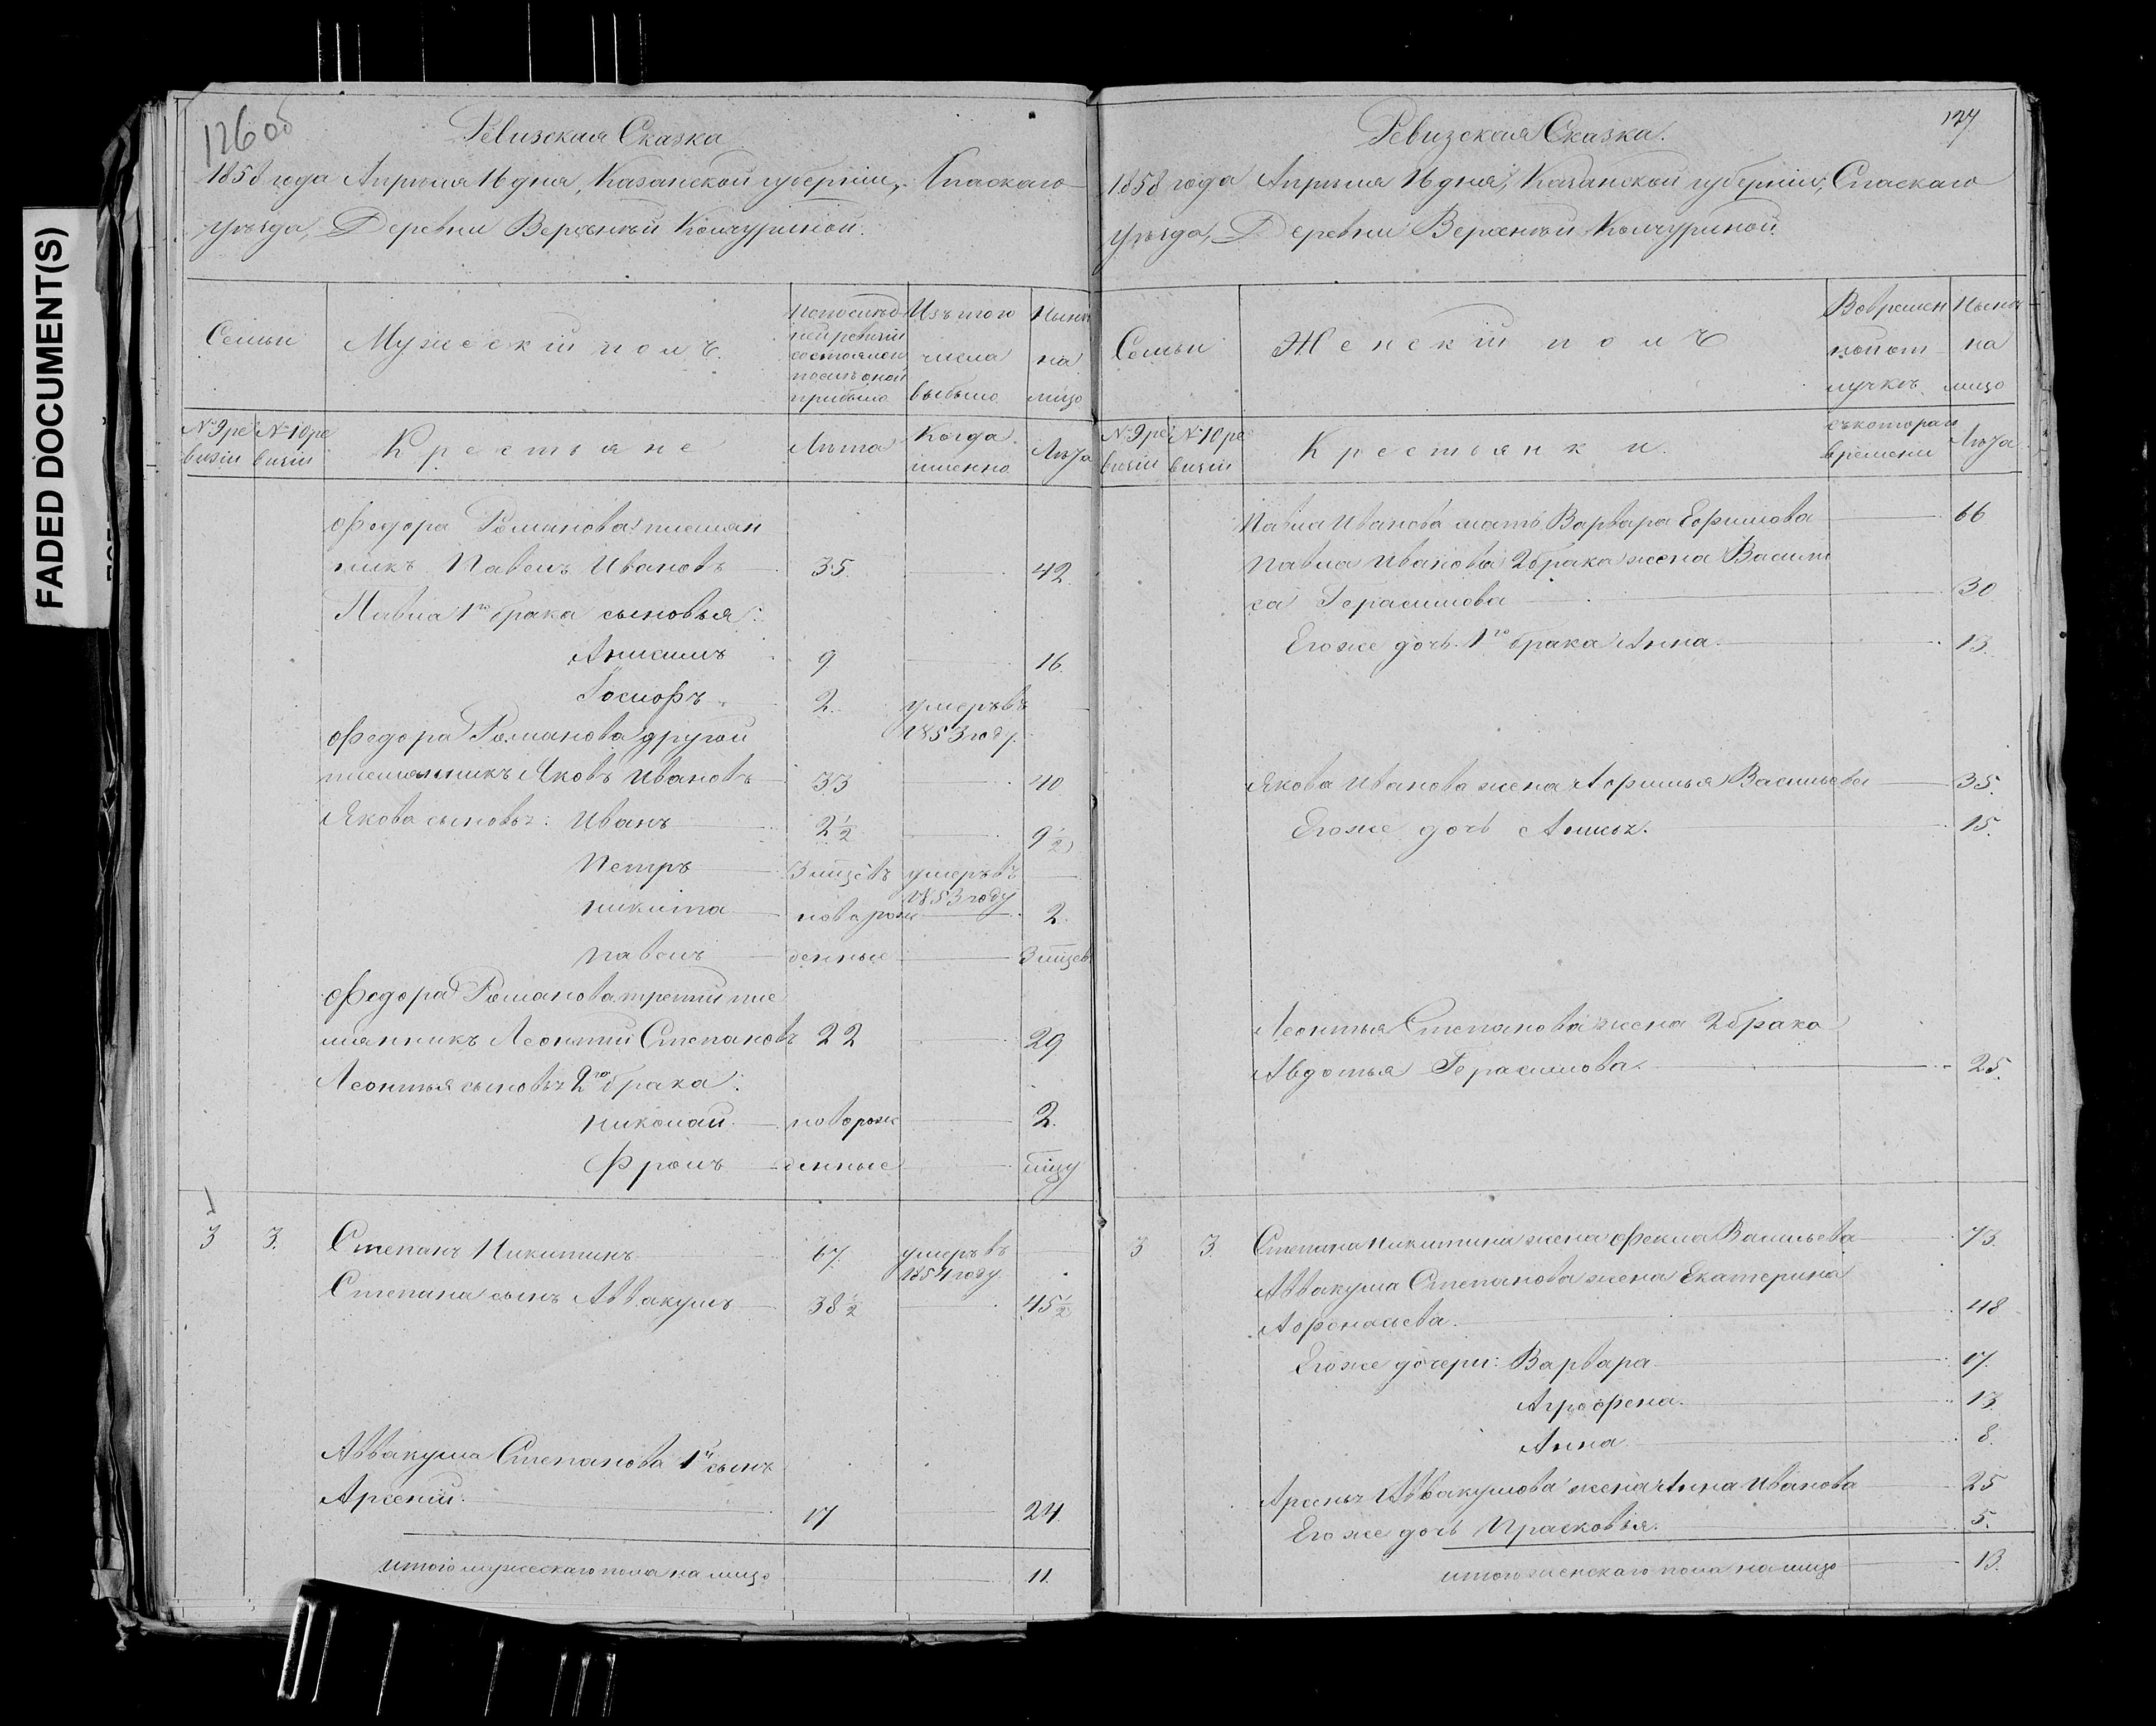 FADED DOCUMENT(S)
126об
Ревизская Сказка
1858 года Апреля 16 дня, Казанской губернии, Спаскаго
уезда, Деревни Верхней Кончуриной.
Семьи
Мужеский полъ.
По последней ревизіи состояло и после оной прибыло
Изъ того числа выбыло
Ныне на лицо
№ 9 ревизіи
№ 10 ревизіи
Крестьяне
Лета
Когда именно
Лета
Федора Романова племян
никъ Павелъ Ивановъ 35. 42.
Павла 1го брака сыновья:
Анисимъ 9 16.
Іосифъ 2. умеръ въ 1853 году.
Федора Романова другой
племянникъ Яковъ Ивановъ 33 40
Якова сыновья: Иванъ 2 1/2 9 1/2
Петръ 3 мцевъ умеръ въ 1853 году
Никита новорож 2.
Павелъ денные 3 мцев
Федора Романова третій пле
мянникъ Леонтій Степановъ 22 29
Леонтья сыновья 2го брака:
Николай новорож 2.
Фролъ денные мцу
3 3. Степанъ Никитинъ 67. умеръ въ 1854 году
Степана сынъ Аввакумъ 38 1/2 45 1/2
Аввакума Степанова 1й сынъ
Арсеній. 17 24.
Итого мужескаго пола на лицо 11.
127
Ревизская Сказка.
1858 года Апреля 16 дня, Казанской губернии, Спаскаго
уезда, Деревни Верхней Кончуриной.
Семьи
Женскій полъ
Во временной отлучке
Ныне на лицо
№ 9 ревизіи
№ 10 ревизіи
Крестьянки.
съ котораго времени
Лета
Павла Иванова мать Варвара Ефимова 66
Павла Иванова 2 брака жена Васили
са Герасимова 30
Его же дочь 1го брака Анна. 13.
Якова Иванова жена Афимья Васильева 35.
Его же дочь 15.
Леонтья Степанова жена 2 брака
Авдотья Герасимова. 25.
3 3. Степана Никитина жена Фекла Васильева 73.
Аввакума Степанова жена Екатерина
Афонасьева. 48
Его же дочери: Варвара 17.
Агрофена. 13.
Анна 8.
Арсенья Аввакумова жена Анна Иванова 25
Его же дочь Прасковья. 5.
Итого женскаго пола на лицо 13.